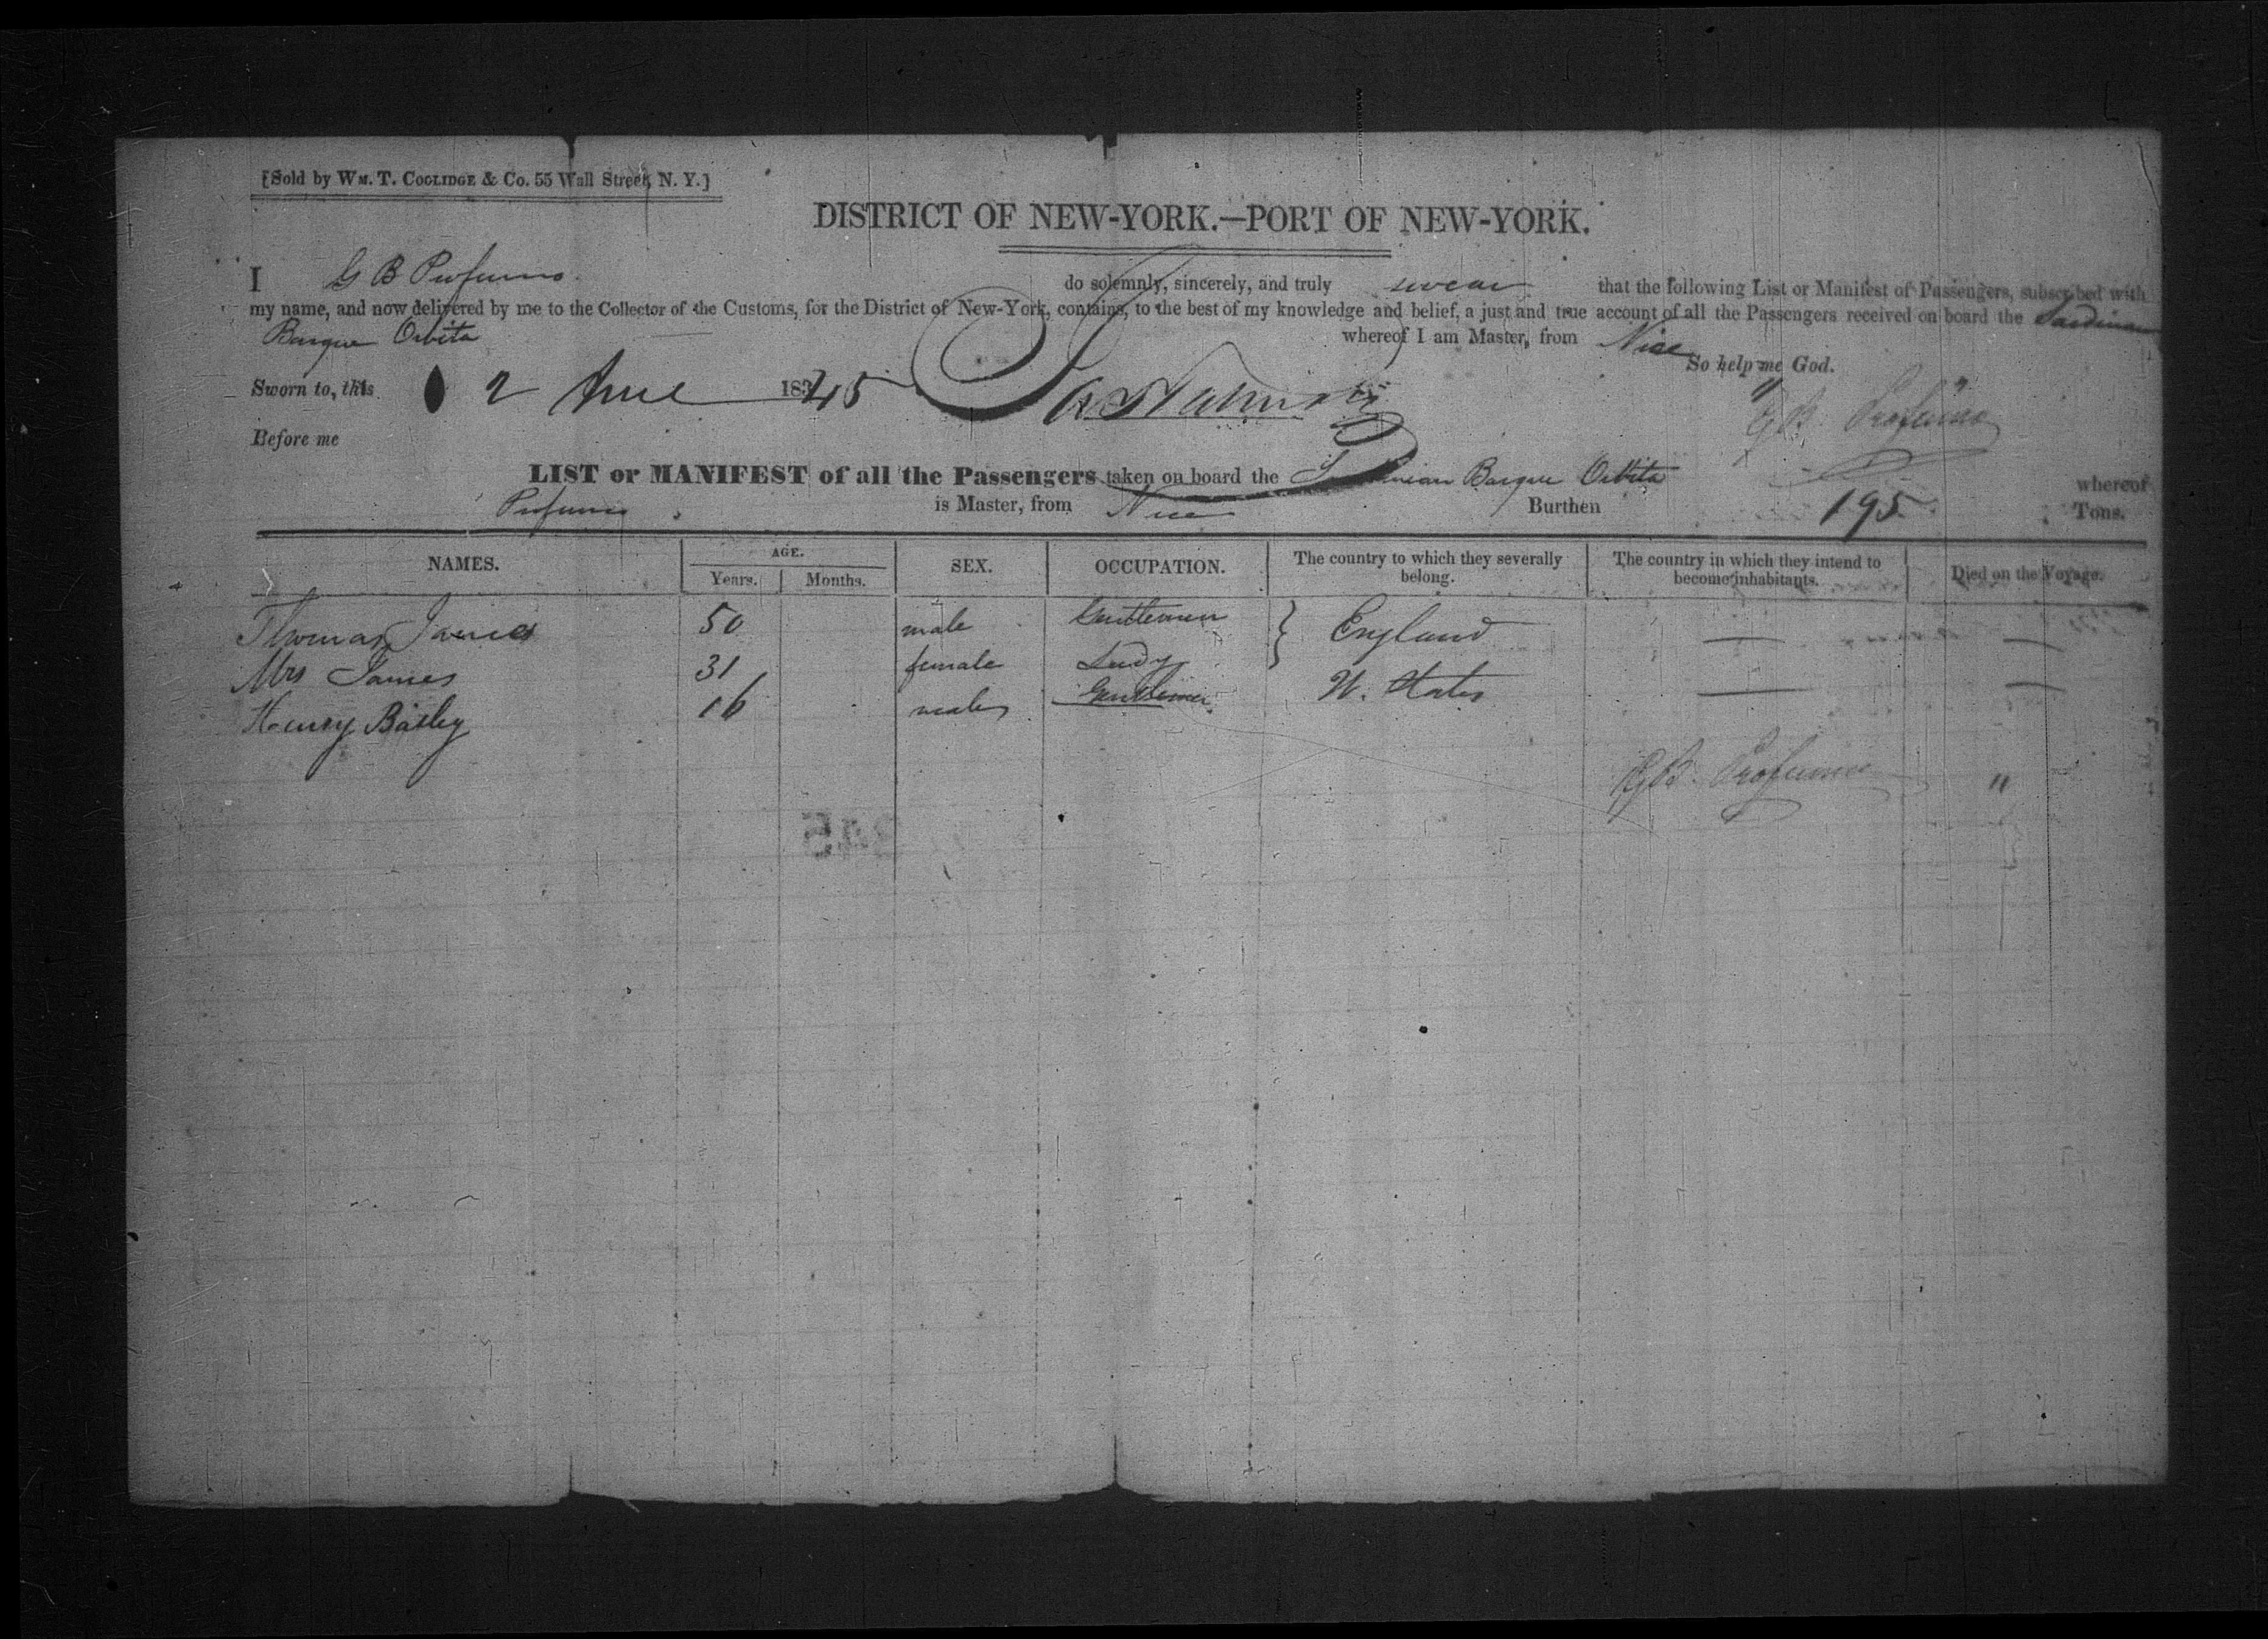 [Sold by WM. T. COOLIDGE & Co. 55 Wall Street, N. Y.]
DISTRICT OF NEW-YORK.—PORT OF NEW-YORK.
I G B Profumo do solemnly, sincerely, and truly swear that the following List or Manifest of Passengers, subscribed with
my name, and now delivered by me to the Collector of the Customs, for the District of New-York, contains, to the best of my knowledge and belief, a just and true account of all the Passengers received on board the Sardinian
Barque Orbita whereof I am Master, from Nice
So help me God.
Sworn to, this 2 June 1845
G B Profumo
Before me
LIST or MANIFEST of all the Passengers taken on board the Sardinian Barque Orbita whereof
Profumo is Master, from Nice Burthen 195 Tons.
NAMES. AGE. SEX. OCCUPATION. The country to which they severally belong. The country in which they intend to become inhabitants. Died on the Voyage.
Years. Months.
Thomas James 50 male Gentleman } England — —
Mrs James 31 female Lady
Henry Bailey 16 male Gentleman U. States — —
G B Profumo "
345